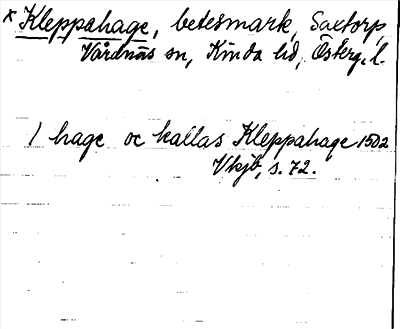 x Kleppahage, betesmark, Saxtorp,
Vårdnäs sn, Kinda hd, Österg. l.
1 hage oc kallas Kleppahage 1502
Vkjb, s. 72.